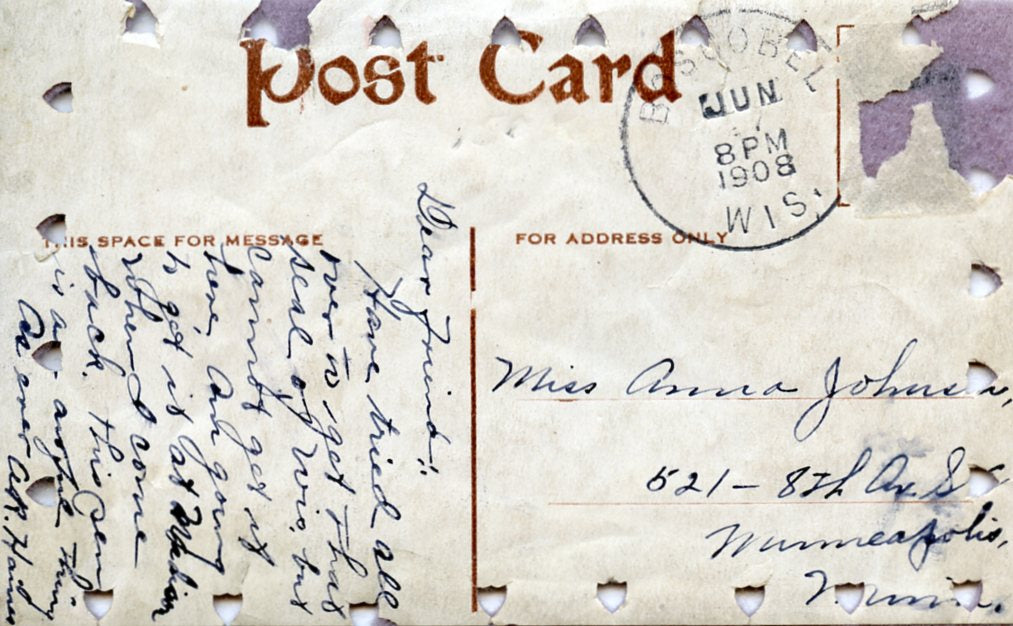 Post Card
BOSCOBEL
JUN
17
8 PM
1908
WIS.
THIS SPACE FOR MESSAGE
FOR ADDRESS ONLY
Dear Friend!!
Have tried all
over to get that
seal of Wis, but
cannot get it
here. Am going
to get it at Madison
when I come
back. This pen
is an awful thing
As ever
Miss Anna Johnson,
521 – 8th Av. S
Minneapolis,
Minn.